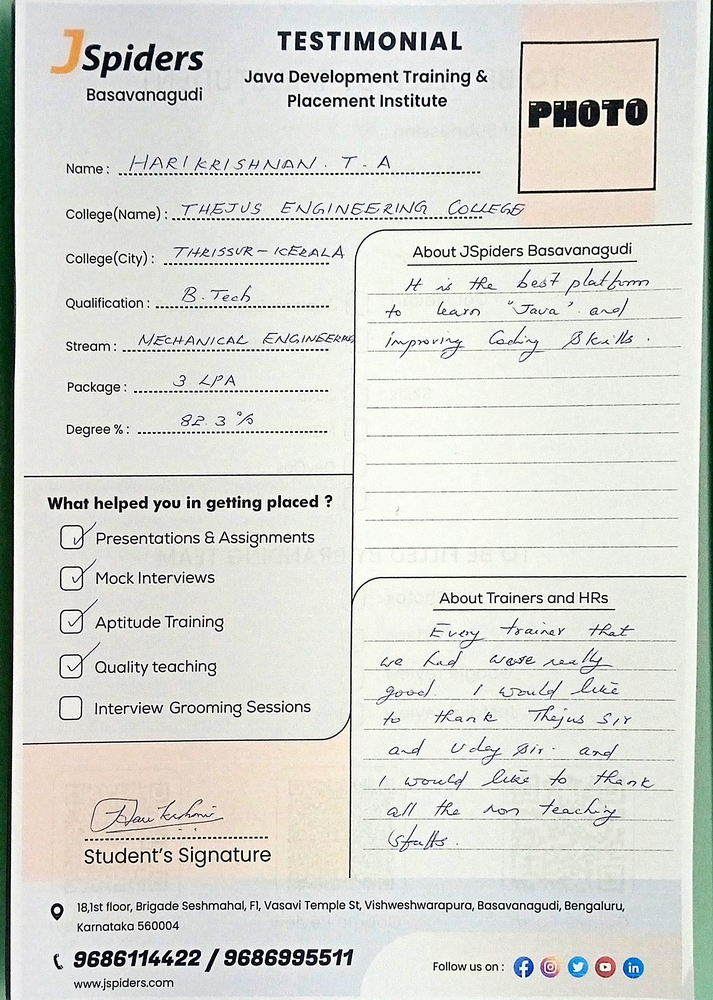 JSpiders
Basavanagudi
TESTIMONIAL
Java Development Training &
Placement Institute
PHOTO
Name : HARIKRISHNAN. T. A
College(Name) : THEJUS ENGINEERING COLLEGE
College(City) : THRISSUR - KERALA
Qualification : B. Tech
Stream : MECHANICAL ENGINEERING
Package : 3 LPA
Degree % : 82.3 %
What helped you in getting placed ?
Presentations & Assignments
Mock Interviews
Aptitude Training
Quality teaching
Interview Grooming Sessions
Student's Signature
About JSpiders Basavanagudi
It is the best platform
to learn "Java" and
improving Coding Skills.
About Trainers and HRs
Every trainer that
we had were really
good. I would like
to thank Thejus Sir
and Uday Sir. and
I would like to thank
all the non teaching
Staffs.
18,1st floor, Brigade Seshmahal, F1, Vasavi Temple St, Vishweshwarapura, Basavanagudi, Bengaluru,
Karnataka 560004
9686114422 / 9686995511
www.jspiders.com
Follow us on :